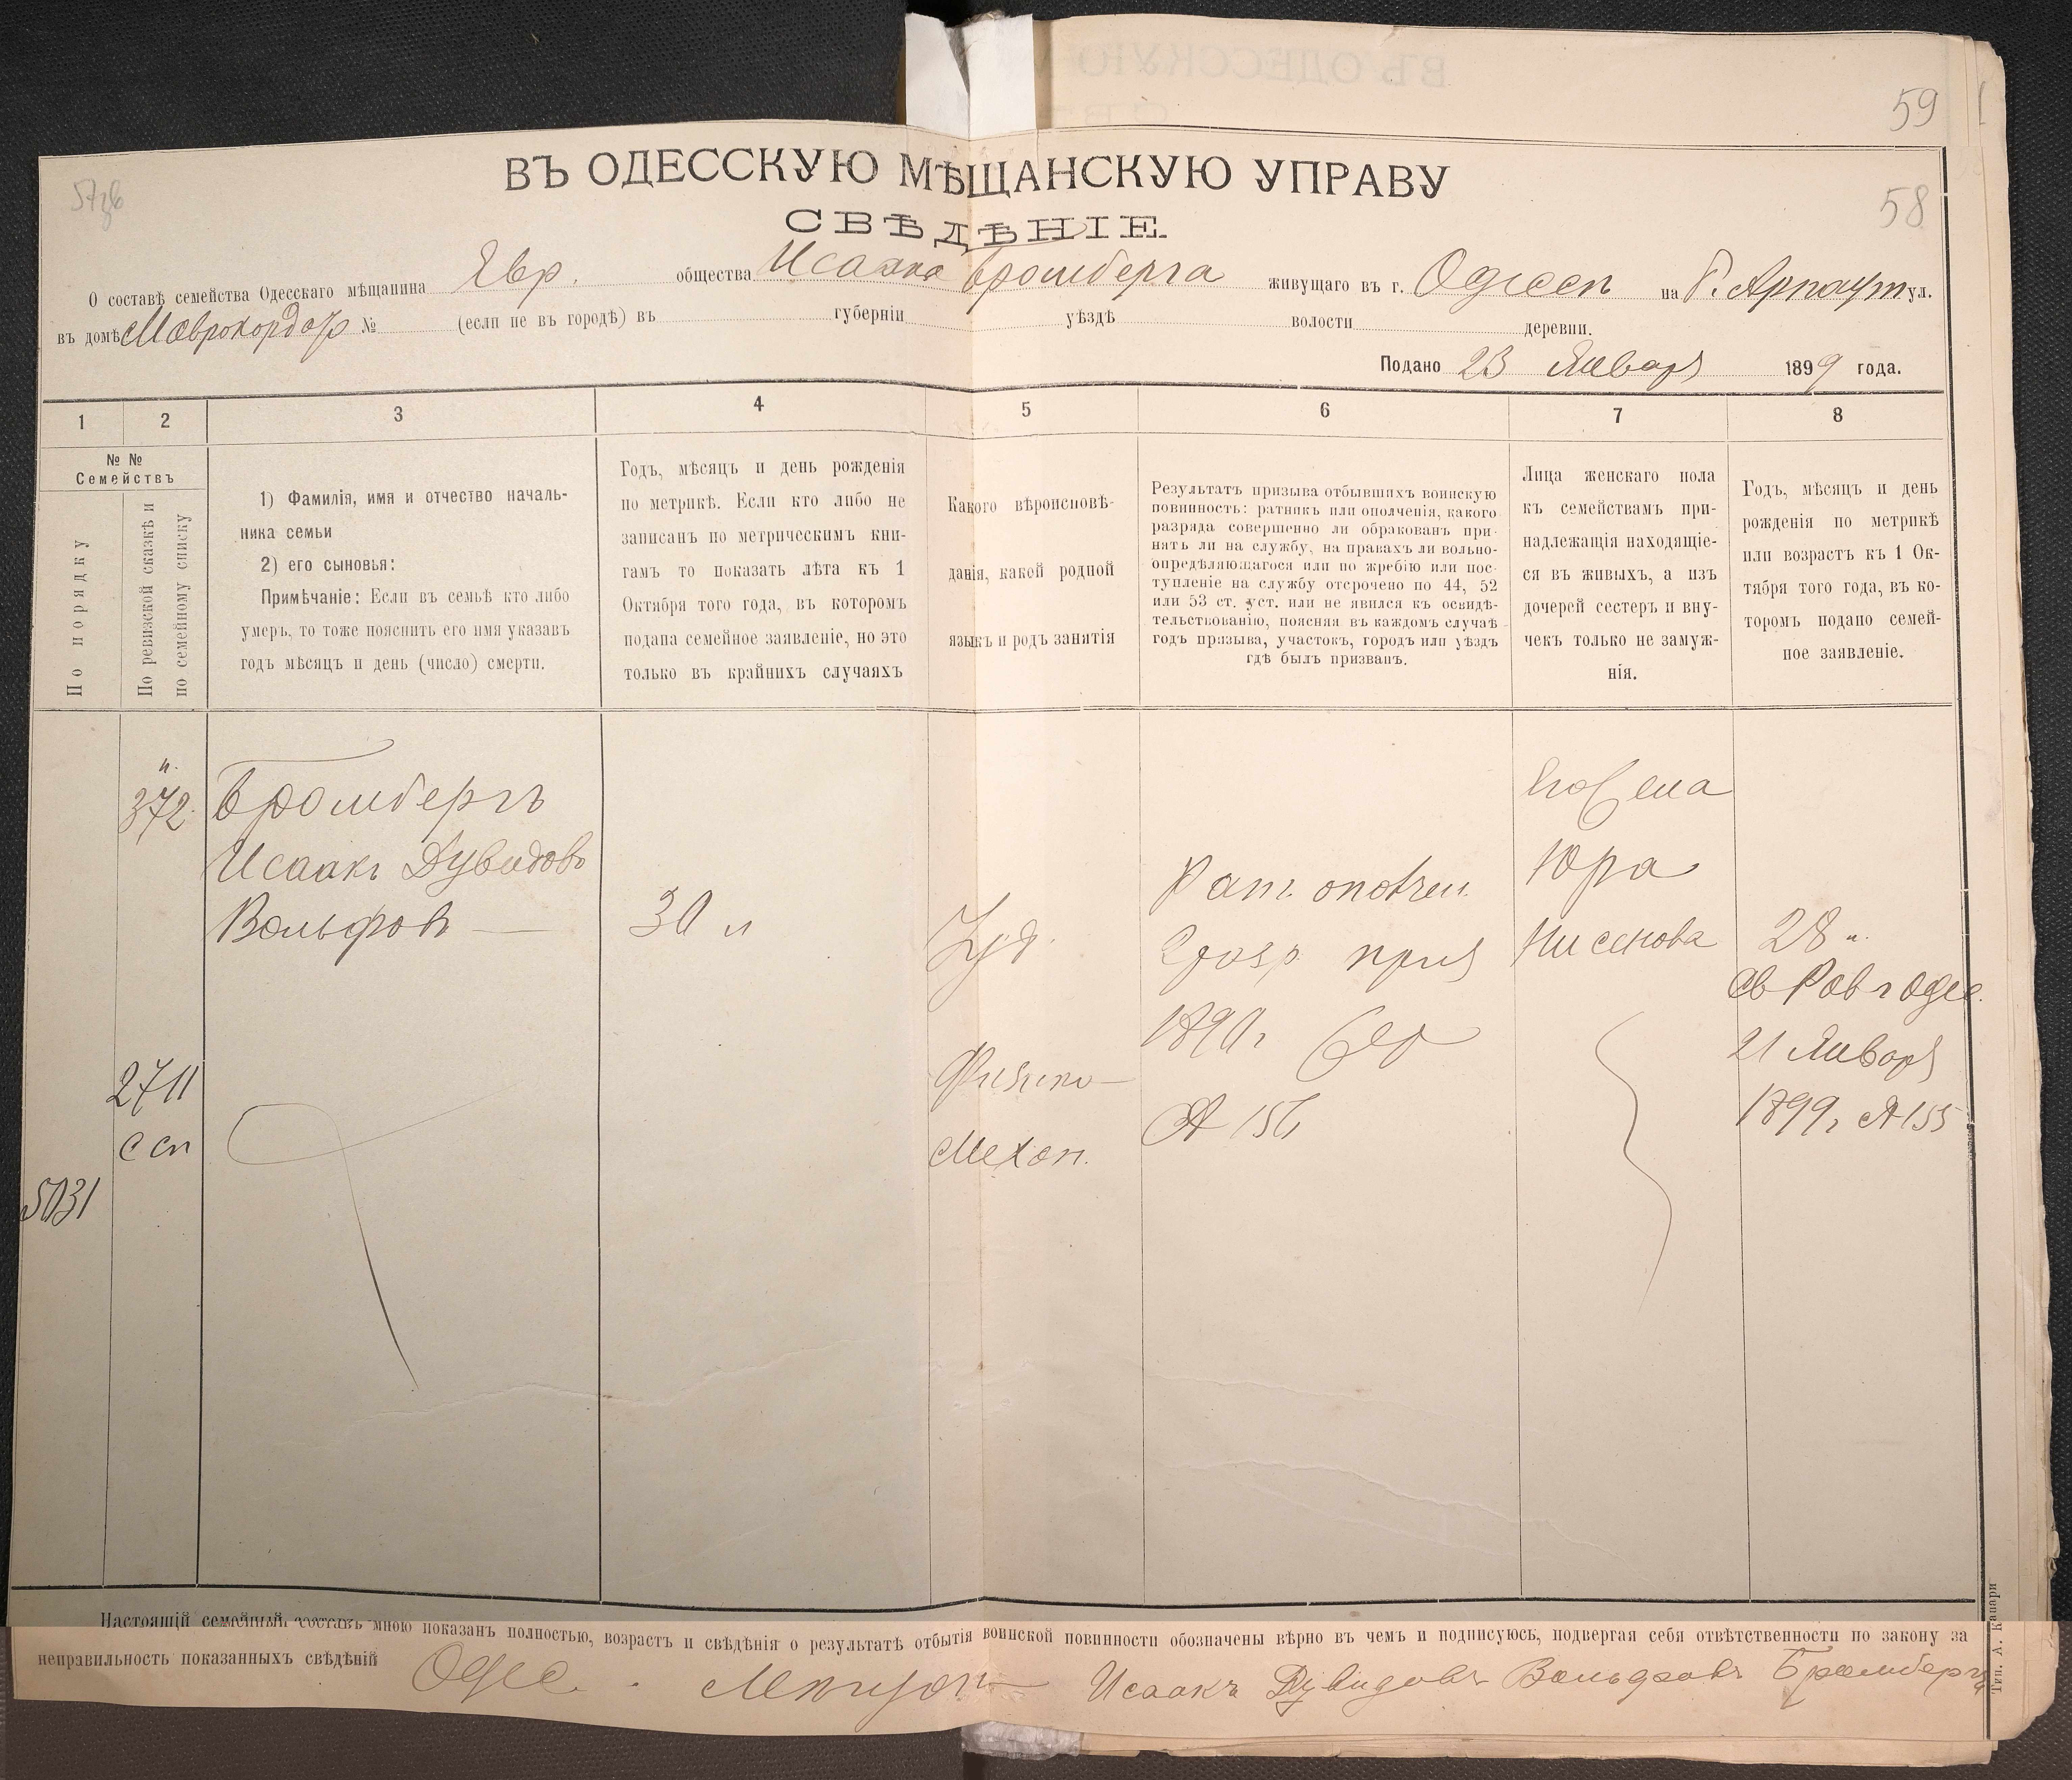 59
ВЪ ОДЕССКУЮ МѢЩАНСКУЮ УПРАВУ
58
СВѢДѢНІЕ
О составѣ семейства Одесскаго мѣщанина Евр. общества Исаака Бромберга живущаго въ г. Одессѣ на Б. Арнаут ул.
въ домѣ Маврокордато № (если не въ городѣ) въ губерніи уѣздѣ волости деревни.
Подано 23 Января 1899 года.
1 2 3 4 5 6 7 8
№ №
Семействъ
По порядку
По ревизской сказкѣ и
по семейному списку
1) Фамилія, имя и отчество началь-
ника семьи
2) его сыновья:
Примѣчаніе: Если въ семьѣ кто либо
умеръ, то тоже пояснить его имя указавъ
годъ мѣсяцъ и день (число) смерти.
Годъ, мѣсяцъ и день рожденія
по метрикѣ. Если кто либо не
записанъ по метрическимъ кни-
гамъ то показать лѣта къ 1
Октября того года, въ которомъ
подана семейное заявленіе, но это
только въ крайнихъ случаяхъ
Какого вѣроисповѣ-
данія, какой родной
языкъ и родъ занятія
Результатъ призыва отбывшихъ воинскую
повинность: ратникъ или ополченія, какого
разряда совершенно ли обракованъ при-
нятъ ли на службу, на правахъ ли вольно-
опредѣляющагося или по жребію или пос-
тупленіе на службу отсрочено по 44, 52
или 53 ст. уст. или не явился къ освидѣ-
тельствованію, поясняя въ каждомъ случаѣ
годъ призыва, участокъ, городъ или уѣздъ
гдѣ былъ призванъ.
Лица женскаго пола
къ семействамъ при-
надлежащія находящіе-
ся въ живыхъ, а изъ
дочерей сестеръ и вну-
чекъ только не замуж-
нія.
Годъ, мѣсяцъ и день
рожденія по метрикѣ
или возрастъ къ 1 Ок-
тября того года, въ ко-
торомъ подано семей-
ное заявленіе.
372
Бромбергъ
Исаакъ Дувидовъ
Вольфовъ
30 л
Іуд.
Рат. ополчен.
2 разр. приз
1890 г
Его жена
Юра
Нисенова
28 л.
св Рав г Одес.
21 Января
1899 г № 155
2711
5031
Механ.
Настоящій семейный составъ мною показанъ полностью, возрастъ и свѣдѣнія о результатѣ отбытія воинской повинности обозначены вѣрно въ чемъ и подписуюсь, подвергая себя отвѣтственности по закону за
неправильность показанныхъ свѣдѣній Одес. Исаакъ Дувидовъ Вольфовъ Бромбергъ
Тип. А. Канари